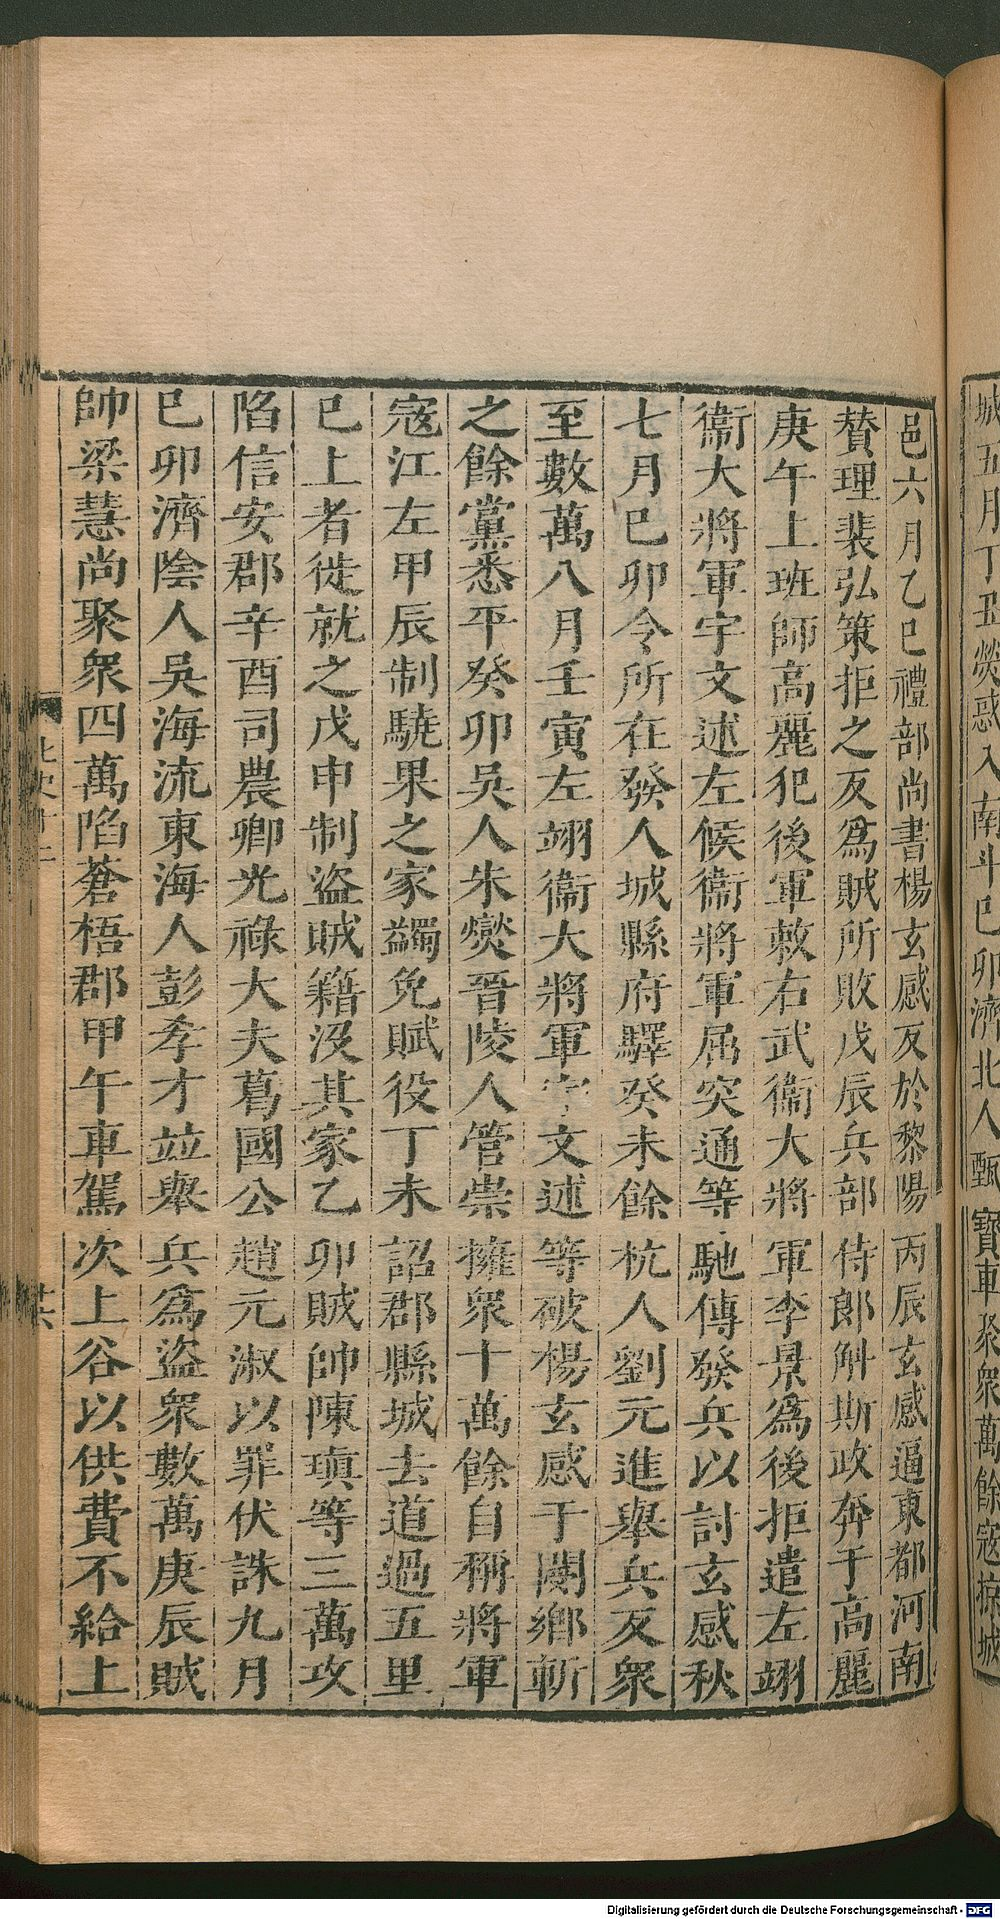 城五月丁丑熒惑入南斗巳卯濟北人甄寶車聚衆萬餘寇掠城
邑六月乙巳禮部尚書楊玄感反於黎陽丙辰玄感逼東都河南
賛理裴弘策拒之反爲賊所敗戊辰兵部侍郎斛斯政奔于高麗
庚午上班師高麗犯後軍敕右武衞大將軍李景爲後拒遣左翊
衞大將軍宇文述左候衞將軍屈突通等馳傳發兵以討玄感秋
七月巳卯令所在發人城縣府驛癸未餘杭人劉元進舉兵反衆
至數萬八月壬寅左翊衞大將軍宇文述等破楊玄感于閿鄉斬
之餘黨悉平癸卯吳人朱燮晉陵人管崇擁衆十萬餘自稱將軍
寇江左甲辰制驍果之家蠲免賦役丁未詔郡縣城去道過五里
巳上者徙就之戊申制盜賊籍没其家乙卯賊帥陳瑱等三萬攻
陷信安郡辛酉司農卿光祿大夫葛國公趙元淑以罪伏誅九月
巳卯濟陰人吳海流東海人彭孝才並舉兵爲盜衆數萬庚辰賊
帥梁慧尚聚衆四萬陷蒼梧郡甲午車駕次上谷以供費不給上
Digitalisierung gefördert durch die Deutsche Forschungsgemeinschaft - DFG